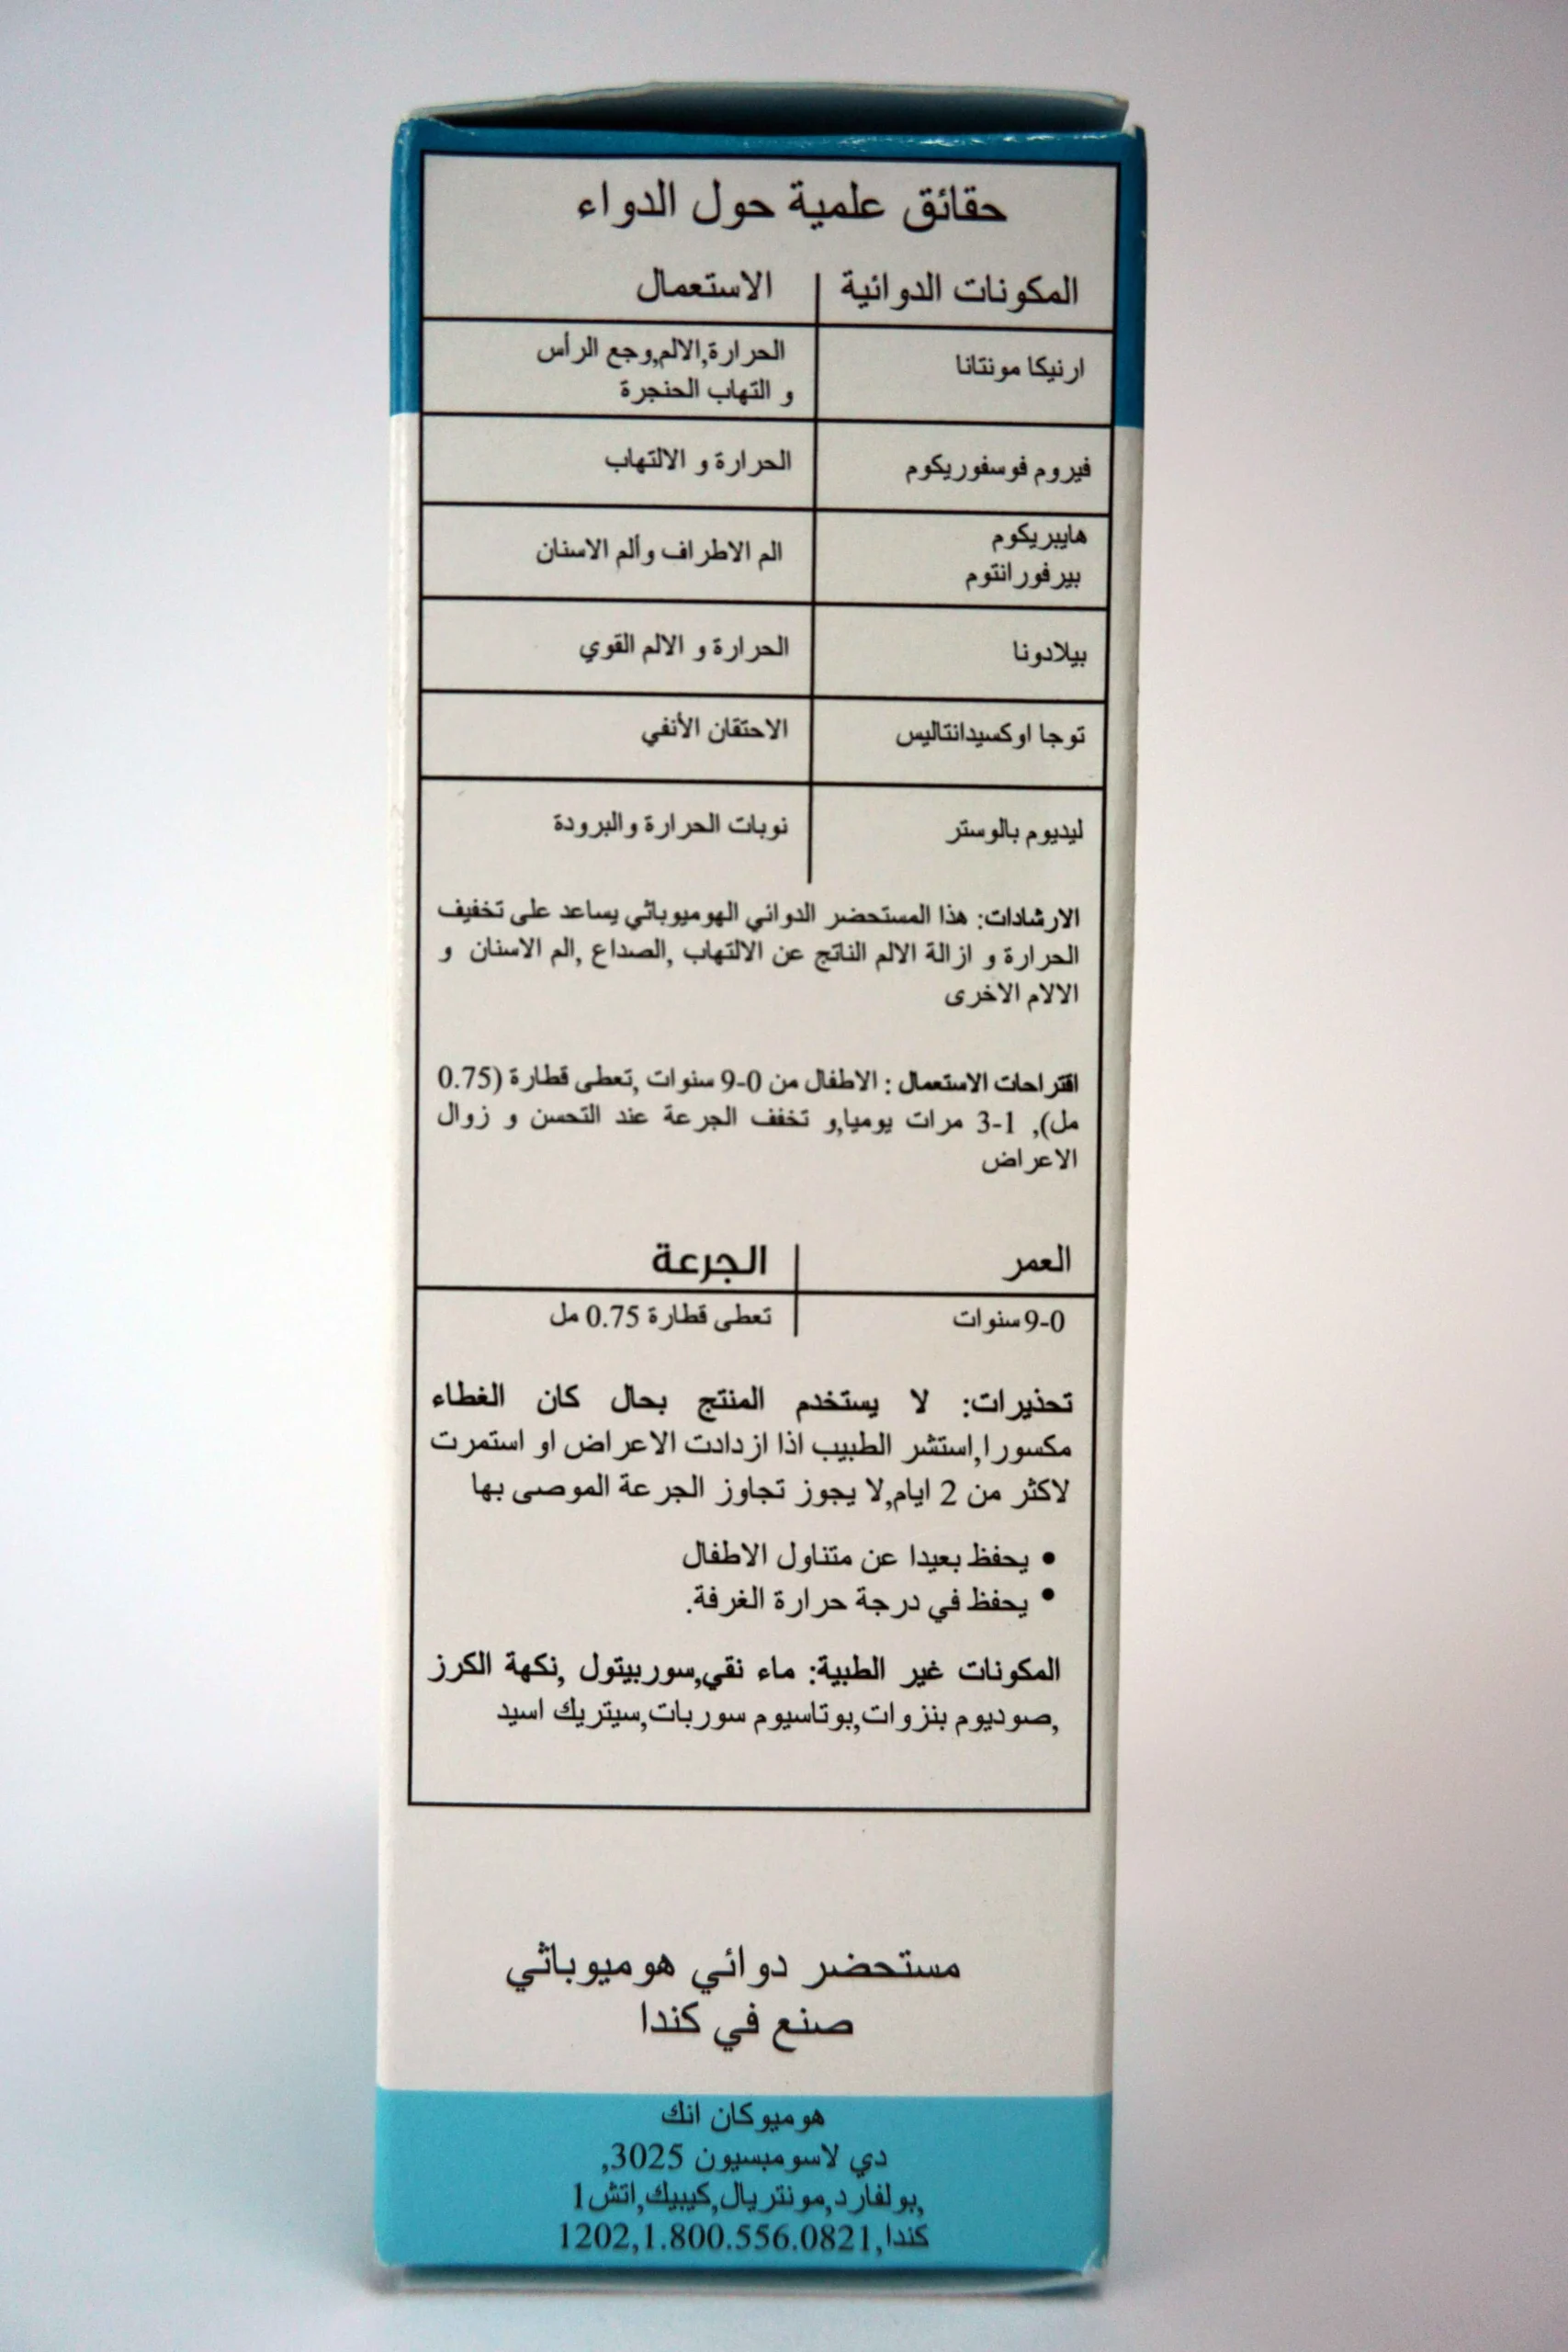 حقائق علمية حول الدواء
المكونات الدوائية | الاستعمال
ارنيكا مونتانا | الحرارة,الالم,وجع الرأس
و التهاب الحنجرة
فيروم فوسفوريكوم | الحرارة و الالتهاب
هايبريكوم
بيرفورانتوم | الم الاطراف وألم الاسنان
بيلادونا | الحرارة و الالم القوي
توجا اوكسيدانتاليس | الاحتقان الأنفي
ليديوم بالوستر | نوبات الحرارة والبرودة
الارشادات: هذا المستحضر الدوائي الهوميوباثي يساعد على تخفيف
الحرارة و ازالة الالم الناتج عن الالتهاب ,الصداع ,الم الاسنان و
الالام الاخرى
اقتراحات الاستعمال : الاطفال من 0-9 سنوات ,تعطى قطارة (0.75
مل), 1-3 مرات يوميا,و تخفف الجرعة عند التحسن و زوال
الاعراض
العمر | الجرعة
0-9 سنوات | تعطى قطارة 0.75 مل
تحذيرات: لا يستخدم المنتج بحال كان الغطاء
مكسورا,استشر الطبيب اذا ازدادت الاعراض او استمرت
لاكثر من 2 ايام,لا يجوز تجاوز الجرعة الموصى بها
• يحفظ بعيدا عن متناول الاطفال
• يحفظ في درجة حرارة الغرفة.
المكونات غير الطبية: ماء نقي,سوربيتول ,نكهة الكرز
,صوديوم بنزوات,بوتاسيوم سوربات,سيتريك اسيد
مستحضر دوائي هوميوباثي
صنع في كندا
هوميوكان انك
دي لاسومبسيون 3025,
,بولفارد,مونتريال,كيبيك,اتش1
كندا,1202,1.800.556.0821